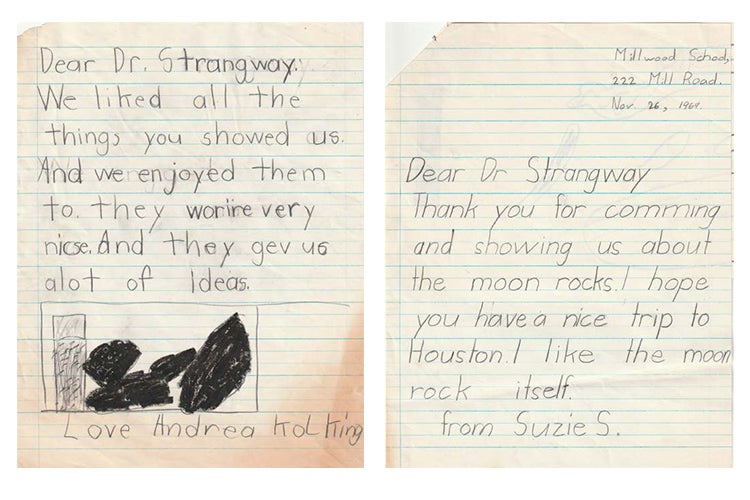 Dear Dr. Strangway.
We liked all the
things you showed us.
And we enjoyed them
to. they
very
nicse. And they gev us
alot of Ideas.
Love Andrea Kolking
Millwood School,
222 Mill Road.
Nov. 26, 1969.
Dear Dr Strangway
Thank you for comming
and showing us about
the moon rocks. I hope
you have a nice trip to
Houston. I like the moon
rock itself.
from Suzie S.